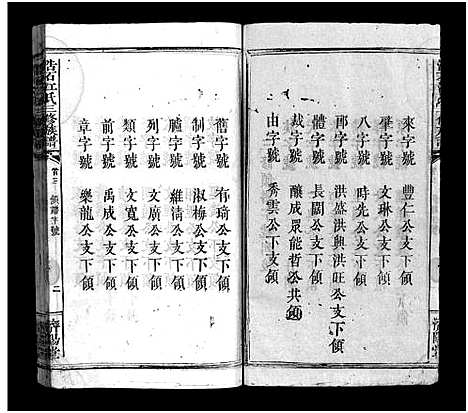 來字號 豐仁公支下領
肇字號 文琳公支下領
八字號 時先公支下領
邯字號 洪盛洪興洪旺公支下領
體字號 長閣公支下領
裁字號 釀成眾能哲公共領
由字號 秀雲公下支領
舊字號 有琦公支下領
制字號 淑梅公支下領
臚字號 維清公支下領
列字號 文廣公支下領
類字號 文寬公支下領
前字號 禹成公支下領
章字號 樂龍公支下領
浩石江氏三修族譜
卷三 領譜字號 二 濟陽堂